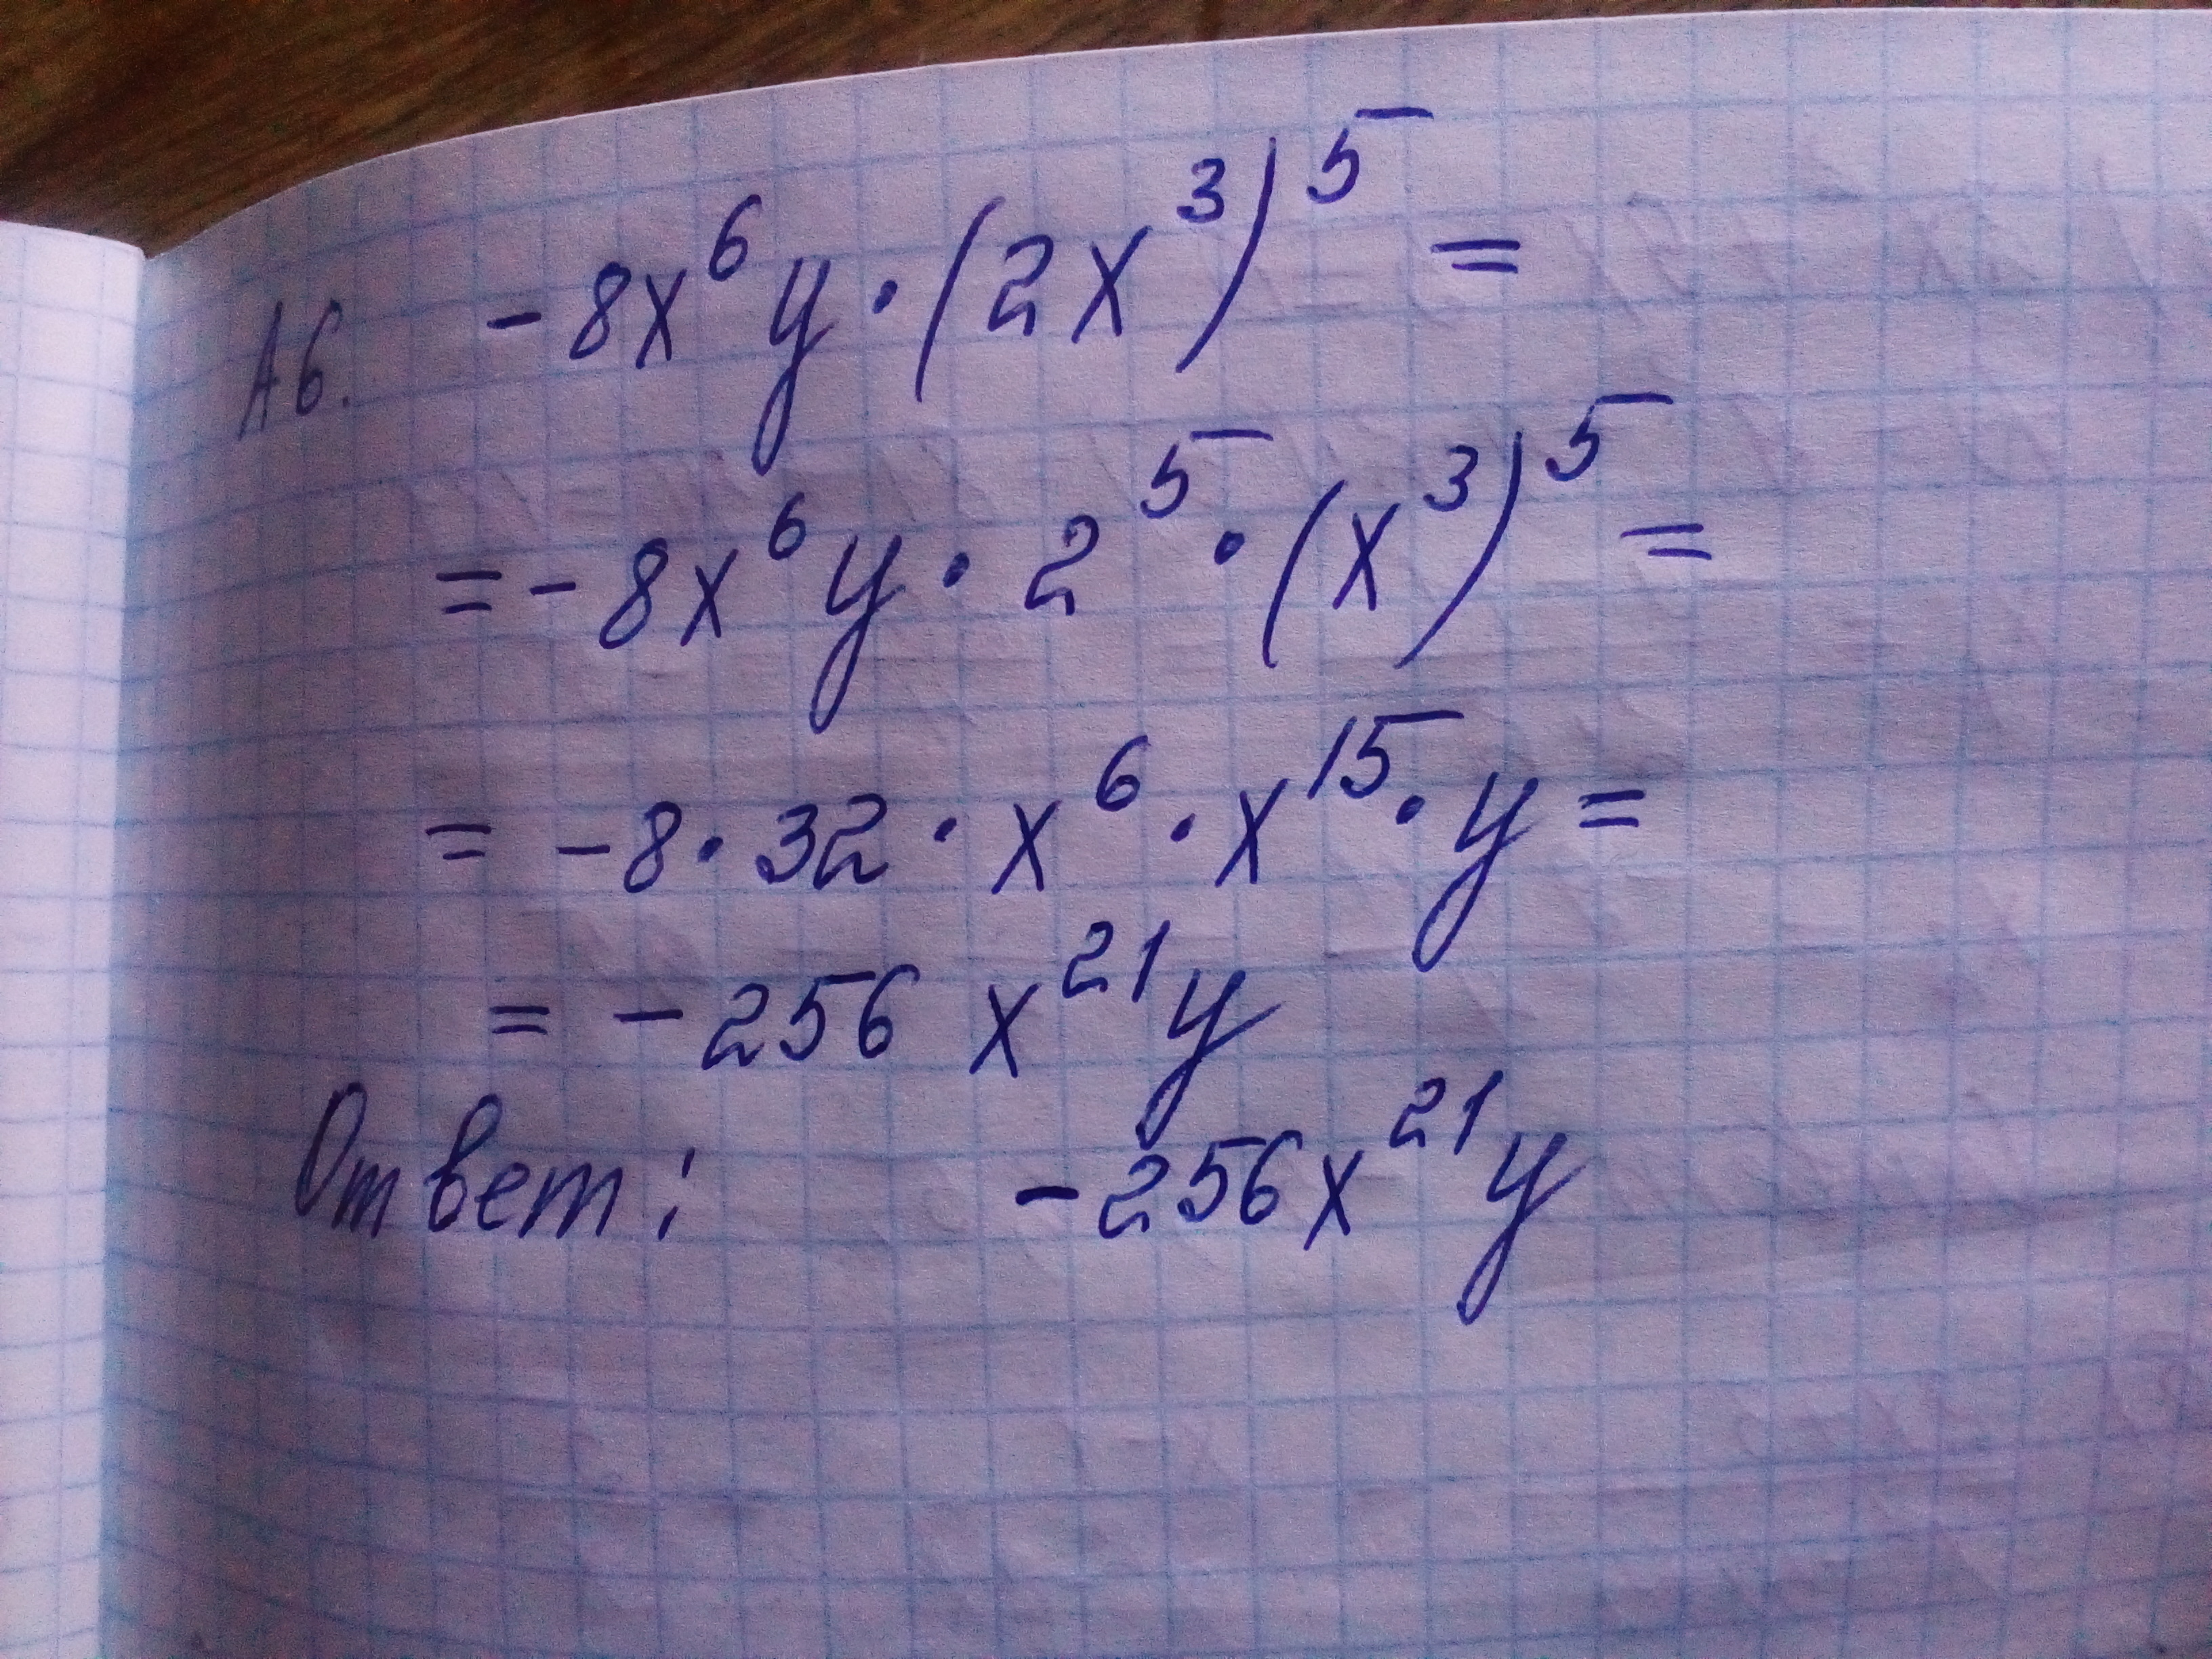 А6. -8x⁶y·(2x³)⁵ =
= -8x⁶y · 2⁵ · (x³)⁵ =
= -8 · 32 · x⁶ · x¹⁵ · y =
= -256 x²¹y
Ответ: -256x²¹y